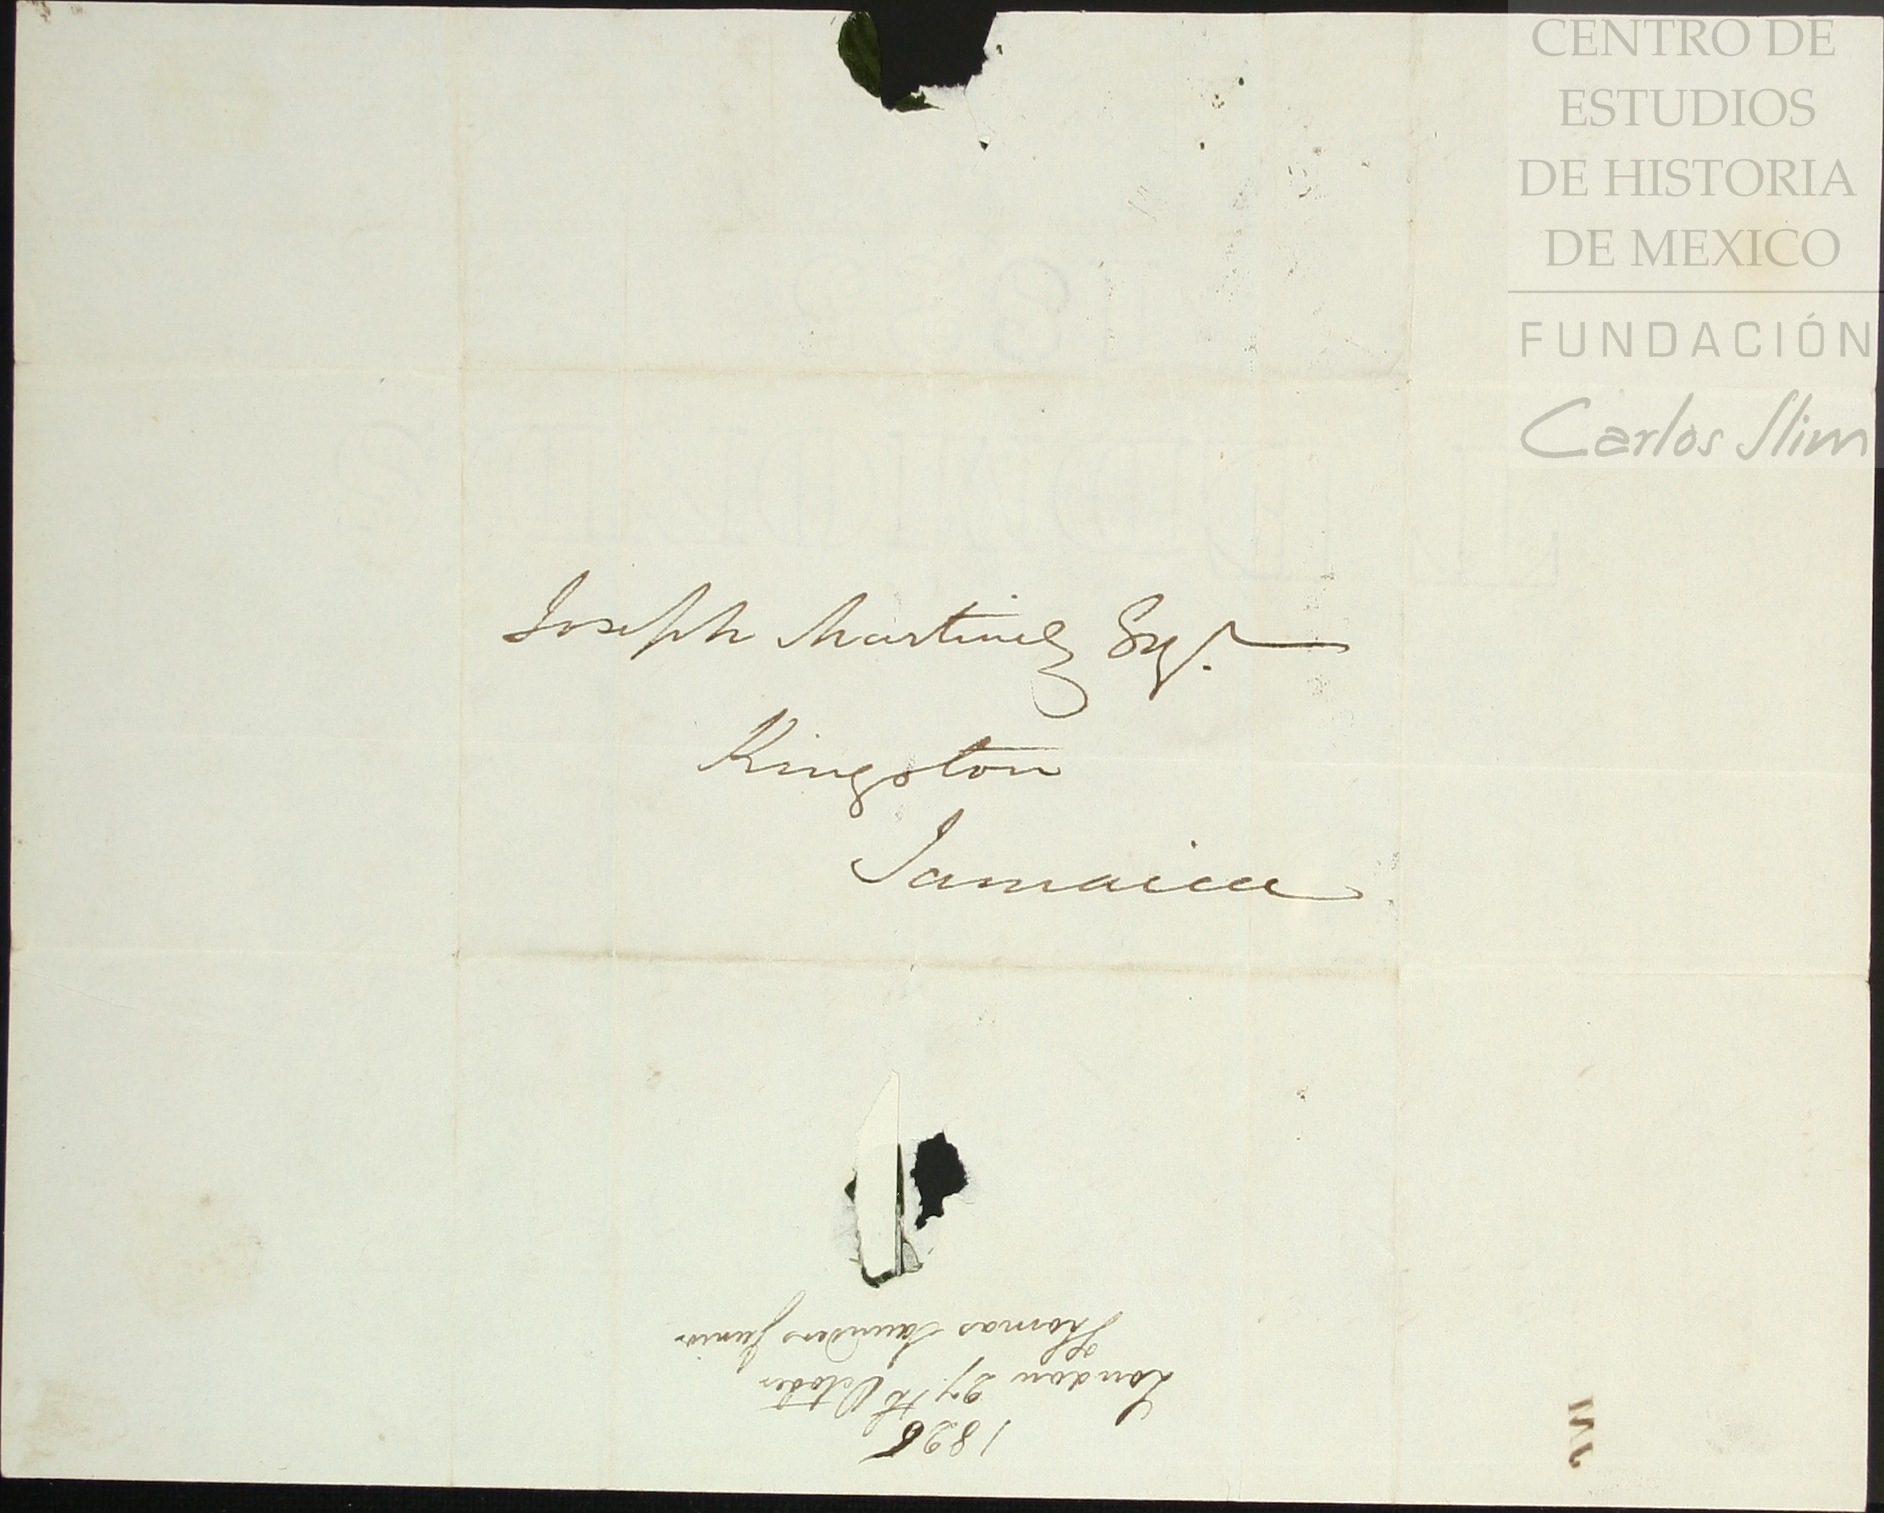 CENTRO DE
ESTUDIOS
DE HISTORIA
DE MEXICO
FUNDACIÓN
Carlos Slim
Joseph Martinez Esqr.
Kingston
Jamaica
1826
London 27th October
Thomas Saunders Junior